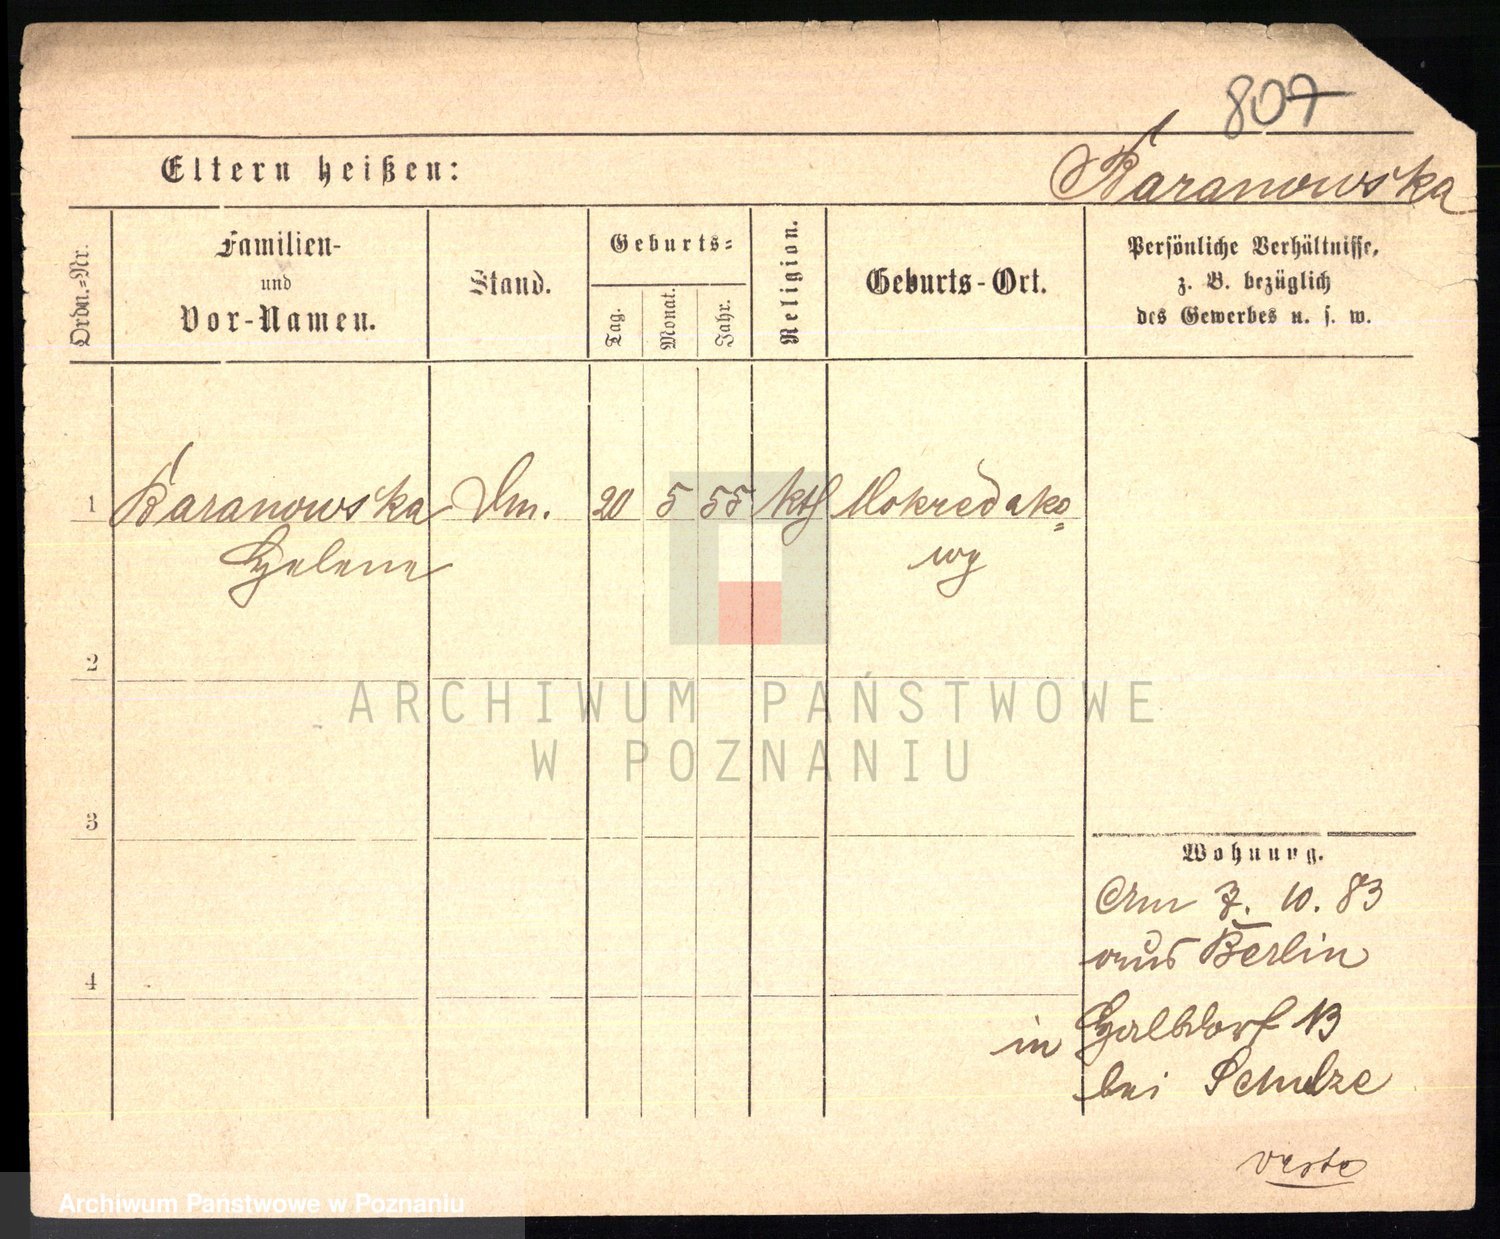 807
Eltern heißen:
Baranowska
Ordn.-Nr.
Familien-
und
Vor-Namen.
Stand.
Geburts-
Tag.
Monat.
Jahr.
Religion.
Geburts-Ort.
Persönliche Verhältnisse,
z. B. bezüglich
des Gewerbes u. s. w.
1 Baranowska 20 5 55 kth Mokredako=
Helene wy
2
ARCHIWUM PAŃSTWOWE
W POZNANIU
3
Wohnung.
Am 7. 10. 83
aus Berlin
4
in Halbdorf 13
bei Schulze
Archiwum Państwowe w Poznaniu